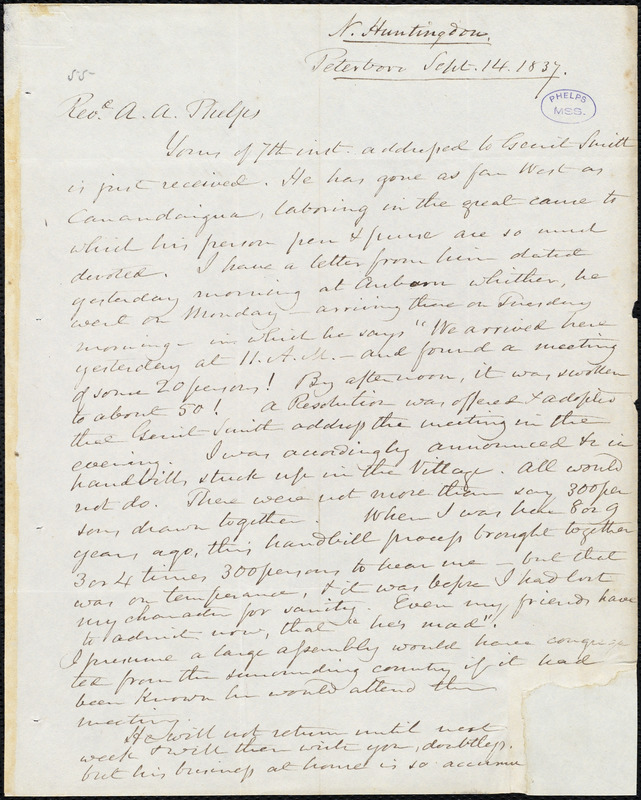 N. Huntingdon.
Peterboro Sept. 14. 1837.
55
PHELPS
MSS.
Revd. A. A. Phelps
Yours of 7th inst. addressed to Gerrit Smith
is just received. He has gone as far West as
Canandaigua, laboring in the great cause to
which his person pen & purse are so much
devoted. I have a letter from him dated
yesterday morning at Auburn whither, he
went on Monday - arriving there on Tuesday
morning - in which he says "We arrived here
yesterday at 11. A.M. - and found a meeting
of some 20 persons! By afternoon, it was swollen
to about 50! A Resolution was offered & adopted
that Gerrit Smith address the meeting in the
evening. I was accordingly announced &c in
handbills stuck up in the Village. All would
not do. There were not more than say 300 per
sons drawn together. When I was here 8 or 9
years ago, this handbill process brought together
3 or 4 times 300 persons to hear me - but that
was on temperance, & it was before I had lost
my character for sanity. Even my friends have
to admit now, that "he's mad".
I presume a large assembly would have congrega
ted from the surrounding country if it had
been known he would attend the
meeting.
He will not return until next
week & will then write you, doubtless.
but his business at home is so accumu